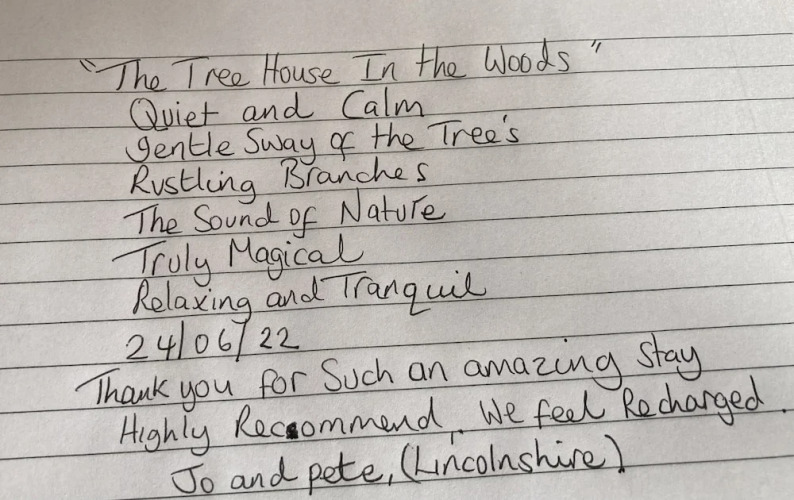 "The Tree House In the Woods"
Quiet and Calm
gentle Sway of the Tree's
Rustling Branches
The Sound of Nature
Truly Magical
Relaxing and Tranquil
24/06/22
Thank you for Such an amazing Stay
Highly Recommend. We feel Recharged.
Jo and pete, (Lincolnshire)